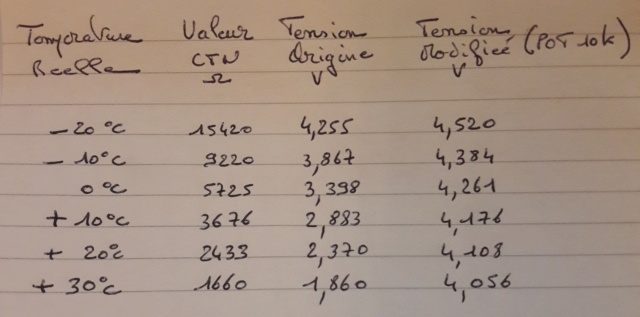 Température Valeur Tension Tension
Réelle CTN Origine Modifiée (POT 10k)
Ω V V
- 20 °C 15420 4,255 4,520
- 10°C 9220 3,867 4,384
0 °C 5725 3,398 4,261
+ 10°C 3676 2,883 4,176
+ 20°C 2433 2,370 4,108
+ 30°C 1660 1,860 4,056